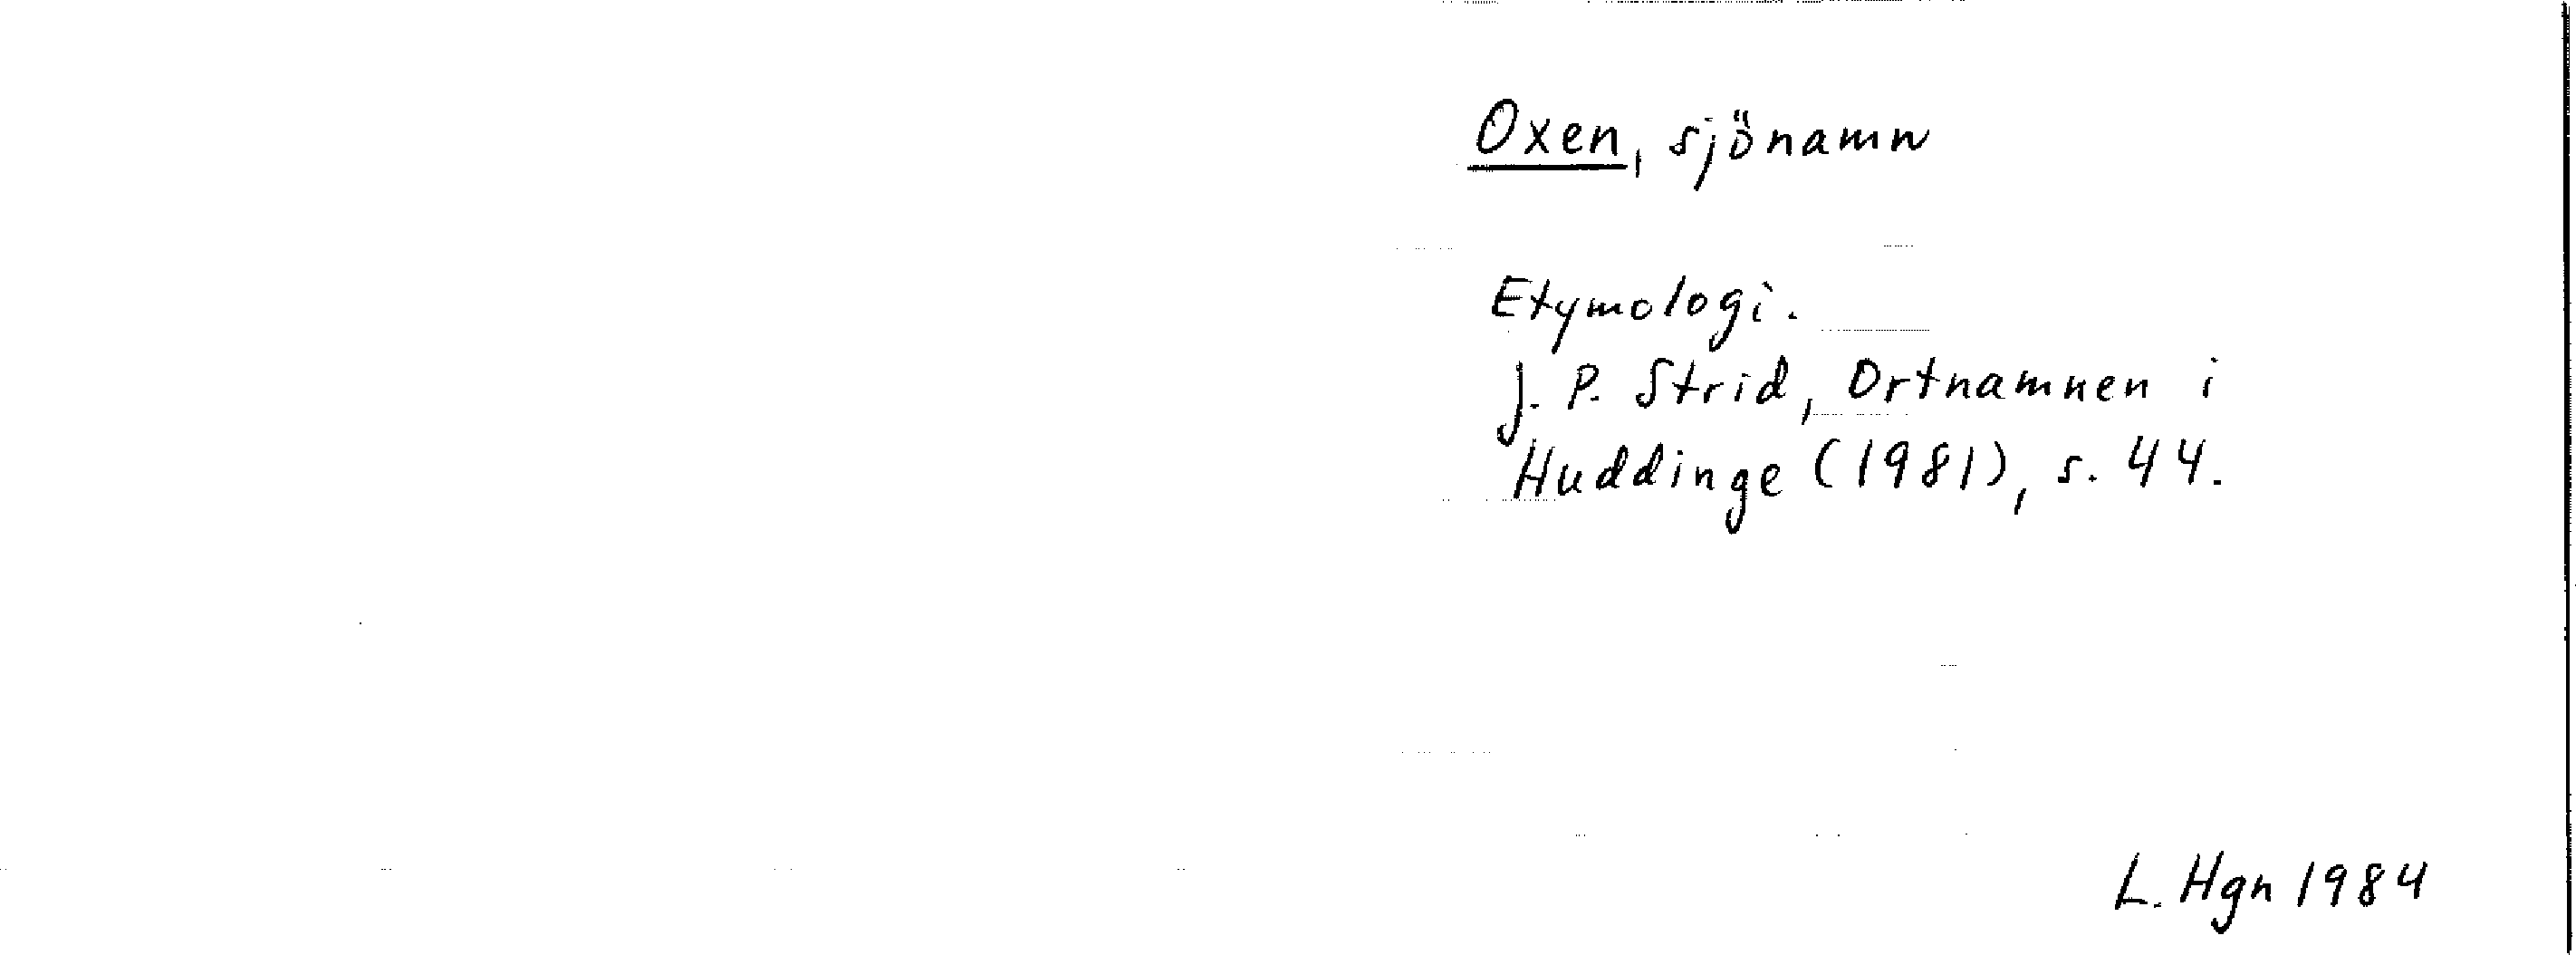 Oxen, sjönamn
Etymologi.
J. P. Strid, Ortnamnen i
Huddinge (1981), s. 44.
L. Hgn 1984